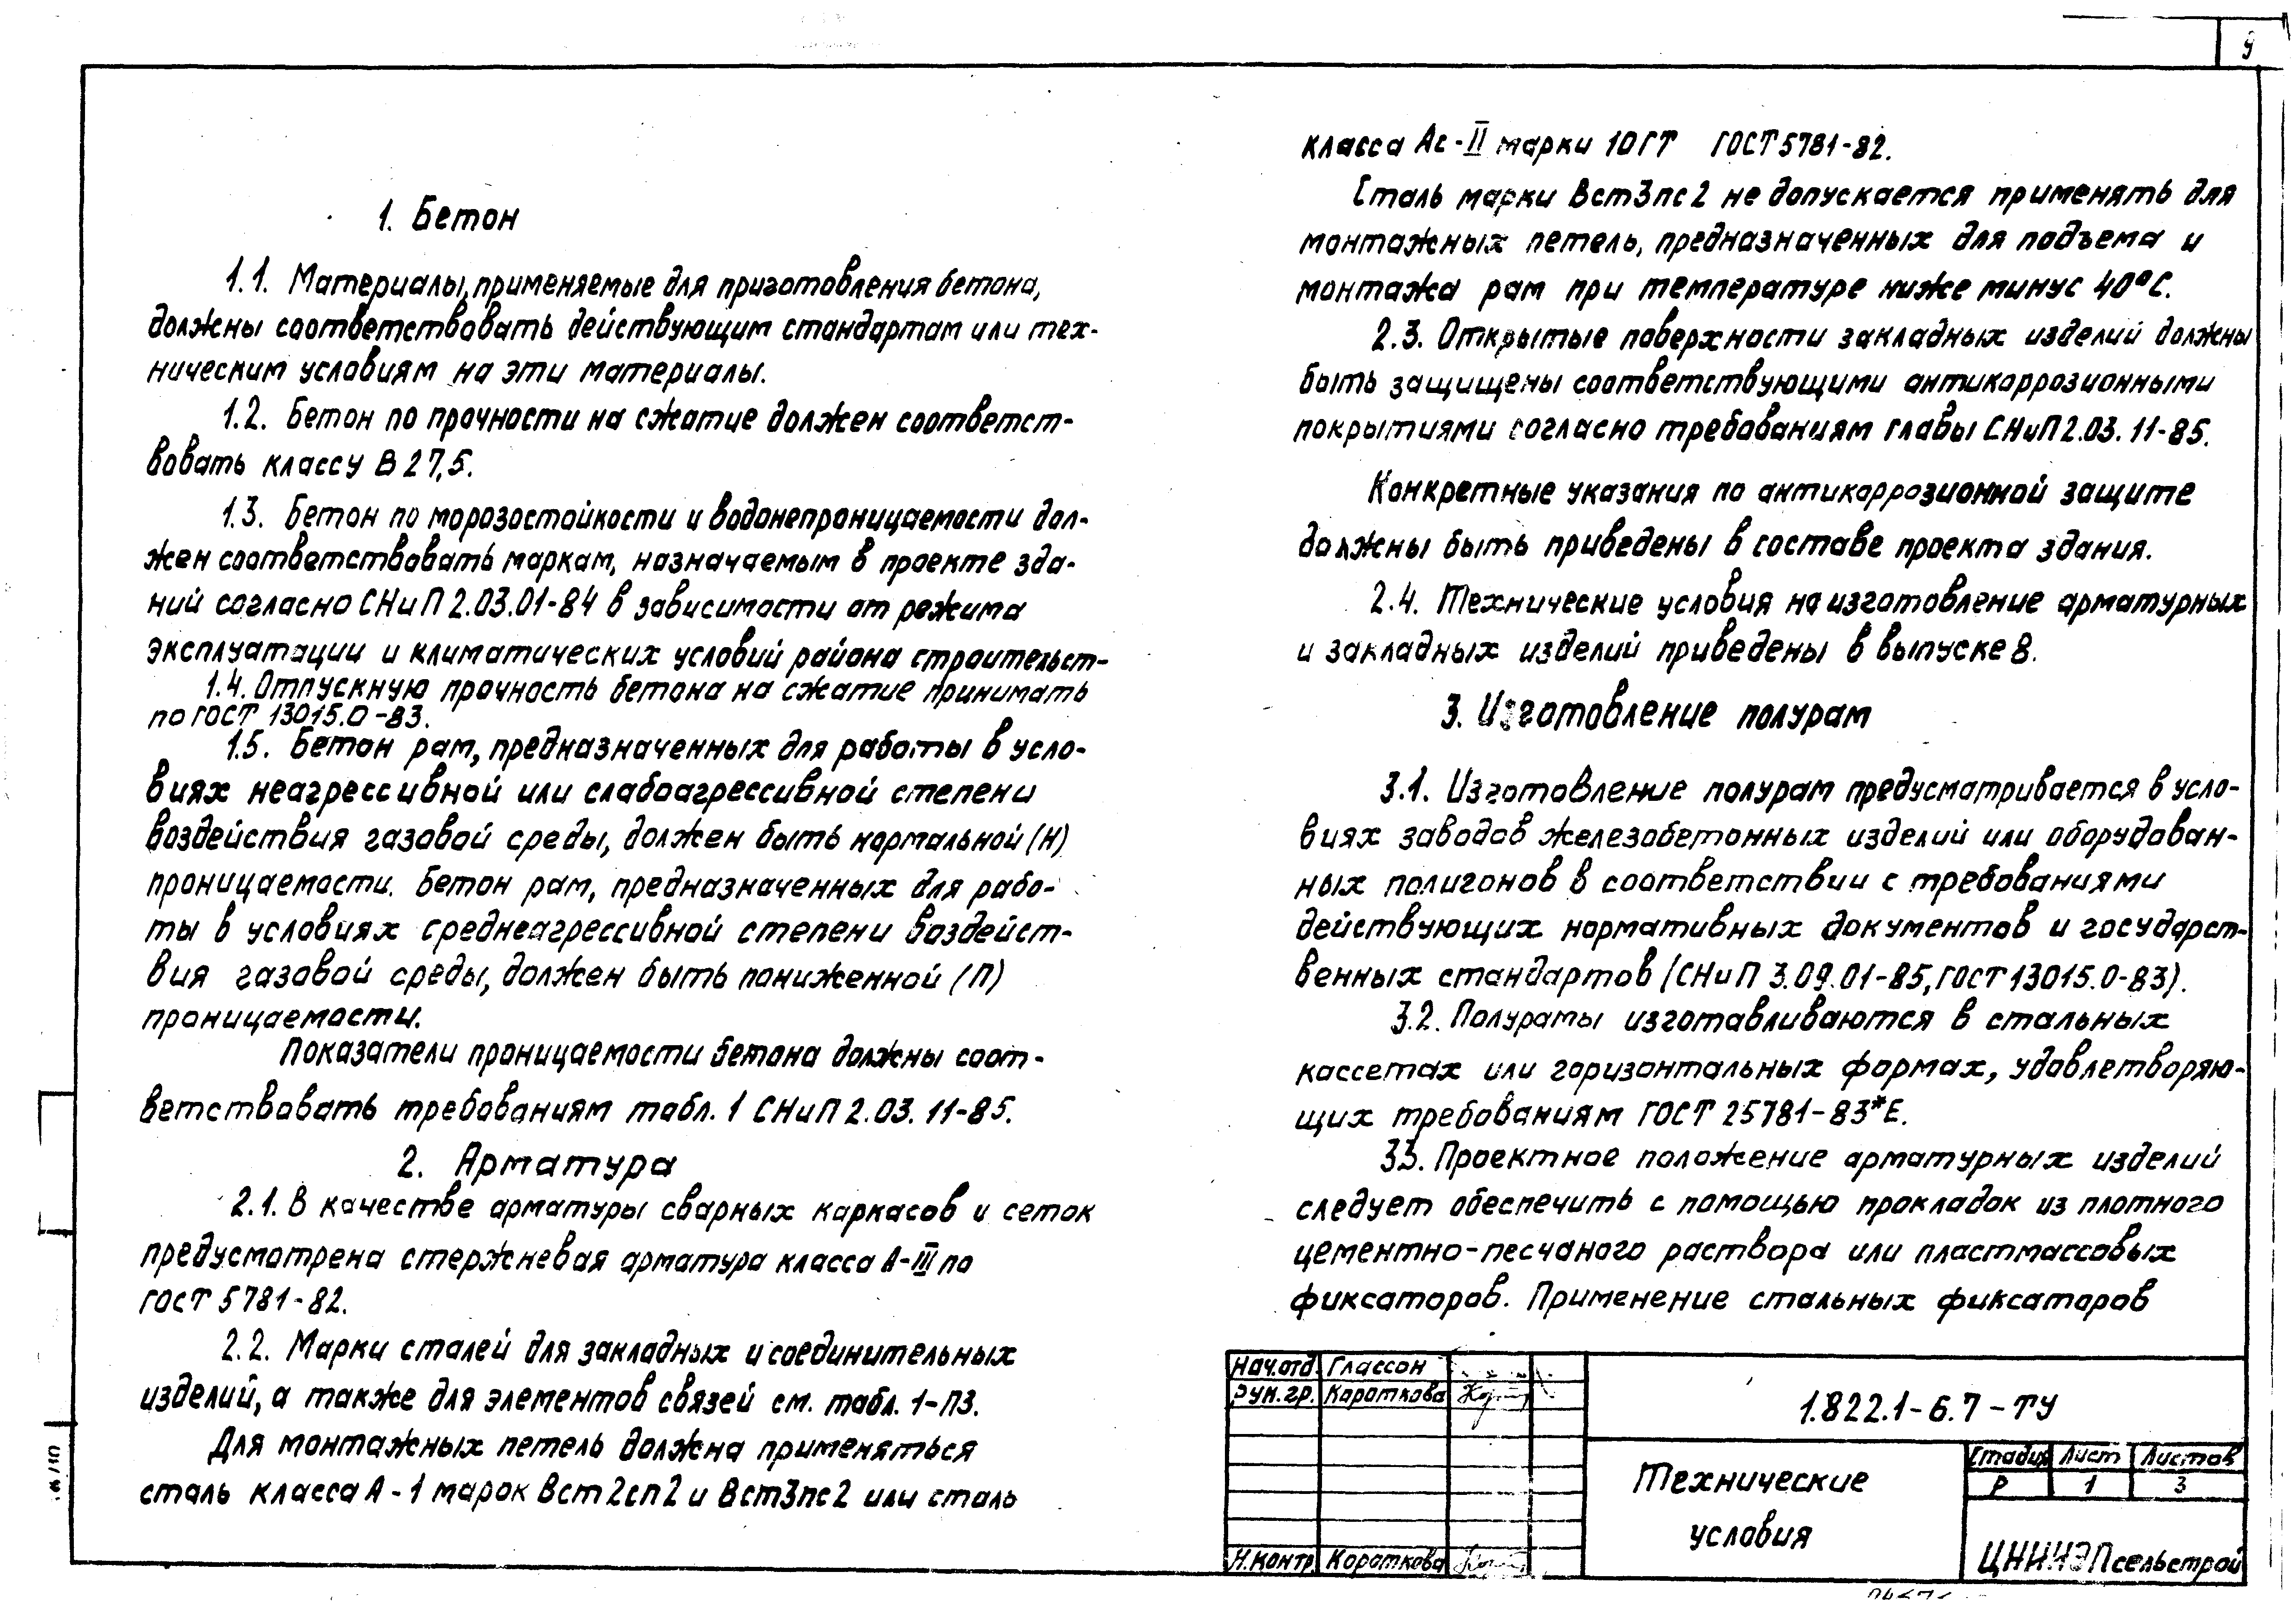 9
1. Бетон
1.1. Материалы, применяемые для приготовления бетона,
должны соответствовать действующим стандартам или тех-
ническим условиям на эти материалы.
1.2. Бетон по прочности на сжатие должен соответст-
вовать классу В 27,5.
1.3. Бетон по морозостойкости и водонепроницаемости дол-
жен соответствовать маркам, назначаемым в проекте зда-
ний согласно СНиП 2.03.01-84 в зависимости от режима
эксплуатации и климатических условий района строительст-
1.4. Отпускную прочность бетона на сжатие принимать
по ГОСТ 13015.0-83.
1.5. Бетон рам, предназначенных для работы в усло-
виях неагрессивной или слабоагрессивной степени
воздействия газовой среды, должен быть нормальной (Н)
проницаемости. Бетон рам, предназначенных для рабо-
ты в условиях среднеагрессивной степени воздейст-
вия газовой среды, должен быть пониженной (П)
проницаемости.
Показатели проницаемости бетона должны соот-
ветствовать требованиям табл. 1 СНиП 2.03.11-85.
2. Арматура
2.1. В качестве арматуры сварных каркасов и сеток
предусмотрена стержневая арматура класса А-III по
ГОСТ 5781-82.
2.2. Марки сталей для закладных и соединительных
изделий, а также для элементов связей см. табл. 1-ПЗ.
Для монтажных петель должна применяться
сталь класса А-1 марок Вст2сп2 и Вст3пс2 или сталь
класса Ас-II марки 10ГТ ГОСТ 5781-82.
Сталь марки Вст3пс2 не допускается применять для
монтажных петель, предназначенных для подъема и
монтажа рам при температуре ниже минус 40°С.
2.3. Открытые поверхности закладных изделий должны
быть защищены соответствующими антикоррозионными
покрытиями согласно требованиям главы СНиП 2.03.11-85.
Конкретные указания по антикоррозионной защите
должны быть приведены в составе проекта здания.
2.4. Технические условия на изготовление арматурных
и закладных изделий приведены в выпуске 8.
3. Изготовление полурам
3.1. Изготовление полурам предусматривается в усло-
виях заводов железобетонных изделий или оборудован-
ных полигонов в соответствии с требованиями
действующих нормативных документов и государст-
венных стандартов (СНиП 3.09.01-85, ГОСТ 13015.0-83).
3.2. Полурамы изготавливаются в стальных
кассетах или горизонтальных формах, удовлетворяю-
щих требованиям ГОСТ 25781-83*Е.
3.3. Проектное положение арматурных изделий
следует обеспечить с помощью прокладок из плотного
цементно-песчаного раствора или пластмассовых
фиксаторов. Применение стальных фиксаторов
Нач.отд. Глассон
Рук.гр. Короткова
Н.контр. Короткова
1.822.1-6.7-ТУ
Технические
условия
Стадия Лист Листов
Р 1 3
ЦНИИЭПсельстрой